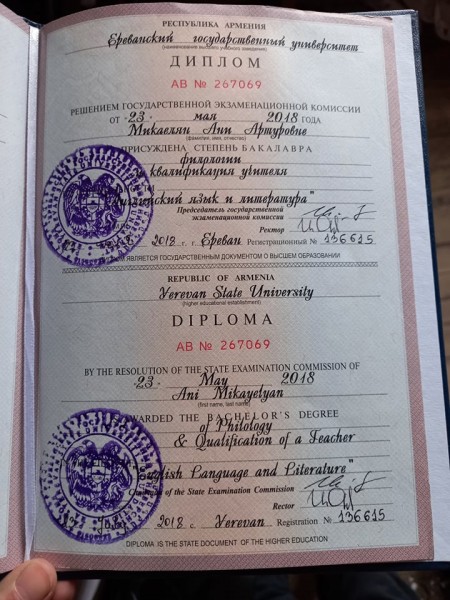 РЕСПУБЛИКА АРМЕНИЯ
Ереванский государственный университет
(наименование высшего учебного заведения)
ДИПЛОМ
АВ № 267069
РЕШЕНИЕМ ГОСУДАРСТВЕННОЙ ЭКЗАМЕНАЦИОННОЙ КОМИССИИ
ОТ -23- мая 2018 ГОДА
Микаелян Ани Артуровне
(фамилия, имя, отчество)
ПРИСУЖДЕНА СТЕПЕНЬ БАКАЛАВРА
филологии
квалификация учителя
язык и литература"
Председатель государственной
экзаменационной комиссии
Ректор
2018 г. г. Ереван Регистрационный № 136615
ЯВЛЯЕТСЯ ГОСУДАРСТВЕННЫМ ДОКУМЕНТОМ О ВЫСШЕМ ОБРАЗОВАНИИ
REPUBLIC OF ARMENIA
Yerevan State University
(higher educational establishment)
DIPLOMA
АВ № 267069
BY THE RESOLUTION OF THE STATE EXAMINATION COMMISSION OF
-23- May 2018
Ani Mikayelyan
(first name, last name)
AWARDED THE BACHELOR'S DEGREE
of Philology
& Qualification of a Teacher
English Language and Literature"
Chairman of the State Examination Commission
Rector
2018 c. Yerevan Registration № 136615
DIPLOMA IS THE STATE DOCUMENT OF THE HIGHER EDUCATION